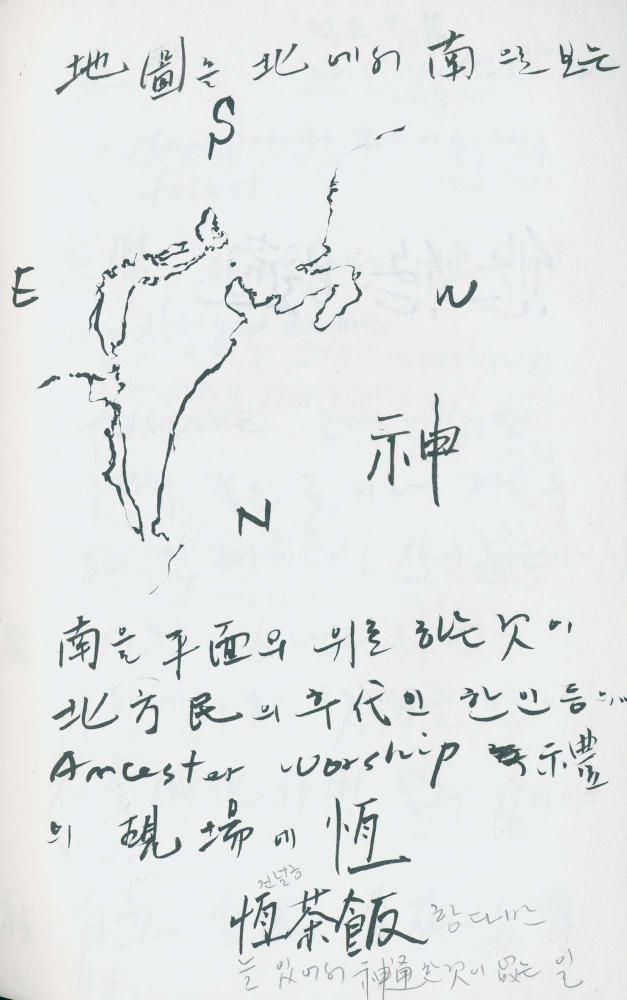 地圖는 北에서 南으로 보는
S
E
W
神
N
南을 平面의 위로 하는 것이
北方民의 후代인 한인들의
Ancester worship 禮
의 現場에 恒
전날능
恒茶飯 항다반
늘 있어서 神通한 것이 없는 일